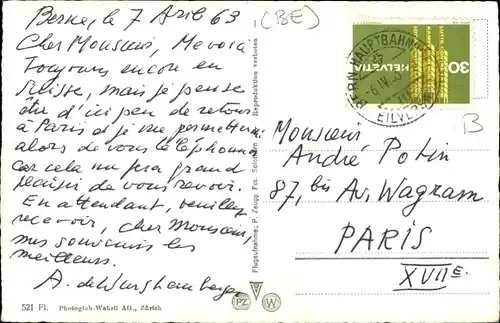 Berne, le 7 Avril 63
(BE)
Cher Monsieur, Me voici
Toujours encore en
Suisse, mais je pense
être d'ici peu de retour
à Paris et je me permettrai
alors de vous téléphoner
car cela me fera grand
plaisir de vous revoir.
En attendant, veuillez
recevoir, cher Monsieur,
mes souvenirs les
meilleurs.
A. de
521 Fl. Photoglob-Wehrli AG., Zürich
Flugaufnahme: P. Zaugg Fot. Solothurn
Reproduktion verboten
PZ
W
HELVETIA
30
BERN HAUPTBAHNHOF
-6.IV.63
EILVE
B
Monsieur
André Potin
87, bis Av. Wagram
PARIS
XVIIE.